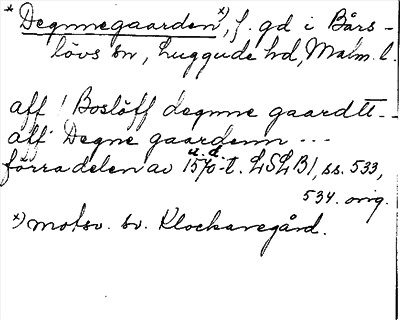 * Degnnegaarden *), f. gd i Bårs-
lövs sn, Luggude hd, Malm. l.
aff ! Boslöff degnne gaardtt - -
aff Degne gaardenn ...
u. d.
förra delen av 1570-t. LSLB1, ss. 533,
534. orig.
*) motsv. sv. Klockaregård.